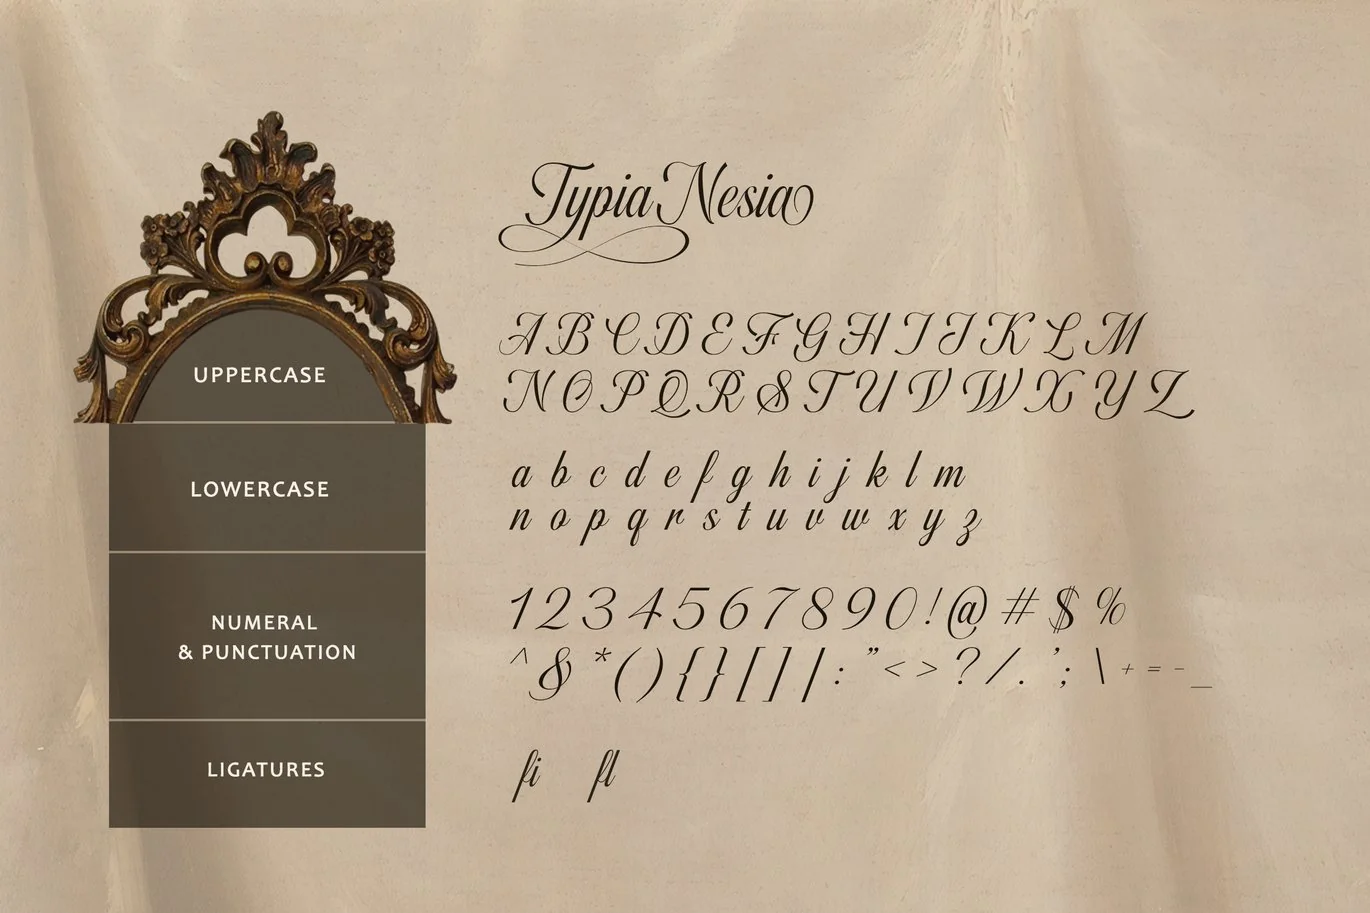 Typia Nesia
UPPERCASE
A B C D E F G H I J K L M
N O P Q R S T U V W X Y Z
LOWERCASE
a b c d e f g h i j k l m
n o p q r s t u v w x y z
NUMERAL
& PUNCTUATION
1 2 3 4 5 6 7 8 9 0 ! @ # $ %
^ & * ( ) { } [ ] | : ” < > ? / . ’ ; \ + = - _
LIGATURES
fi fl